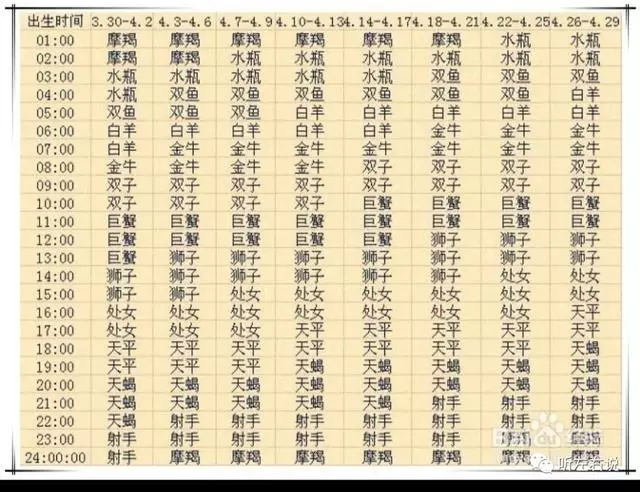 出生时间 3.30-4.2 4.3-4.6 4.7-4.9 4.10-4.13 4.14-4.17 4.18-4.21 4.22-4.25 4.26-4.29
01:00 摩羯 摩羯 摩羯 摩羯 摩羯 摩羯 水瓶 水瓶
02:00 摩羯 摩羯 水瓶 水瓶 水瓶 水瓶 水瓶 水瓶
03:00 水瓶 水瓶 水瓶 水瓶 水瓶 双鱼 双鱼 双鱼
04:00 水瓶 双鱼 双鱼 双鱼 双鱼 双鱼 双鱼 白羊
05:00 双鱼 双鱼 双鱼 白羊 白羊 白羊 白羊 白羊
06:00 白羊 白羊 白羊 白羊 白羊 金牛 金牛 金牛
07:00 白羊 金牛 金牛 金牛 金牛 金牛 金牛 金牛
08:00 金牛 金牛 金牛 金牛 双子 双子 双子 双子
09:00 双子 双子 双子 双子 双子 双子 双子 双子
10:00 双子 双子 双子 双子 巨蟹 巨蟹 巨蟹 巨蟹
11:00 巨蟹 巨蟹 巨蟹 巨蟹 巨蟹 巨蟹 巨蟹 巨蟹
12:00 巨蟹 巨蟹 巨蟹 巨蟹 巨蟹 狮子 狮子 狮子
13:00 巨蟹 狮子 狮子 狮子 狮子 狮子 狮子 狮子
14:00 狮子 狮子 狮子 狮子 狮子 狮子 处女 处女
15:00 狮子 狮子 处女 处女 处女 处女 处女 处女
16:00 处女 处女 处女 处女 处女 处女 处女 天平
17:00 处女 处女 处女 天平 天平 天平 天平 天平
18:00 天平 天平 天平 天平 天平 天平 天平 天蝎
19:00 天平 天平 天平 天蝎 天蝎 天蝎 天蝎 天蝎
20:00 天蝎 天蝎 天蝎 天蝎 天蝎 天蝎 天蝎 天蝎
21:00 天蝎 天蝎 天蝎 天蝎 天蝎 射手 射手 射手
22:00 天蝎 射手 射手 射手 射手 射手 射手 射手
23:00 射手 射手 射手 射手 射手 射手 射手 摩羯
24:00:00 射手 摩羯 摩羯 摩羯 摩羯 摩羯 摩羯 摩羯
Bai 百科
听左右说